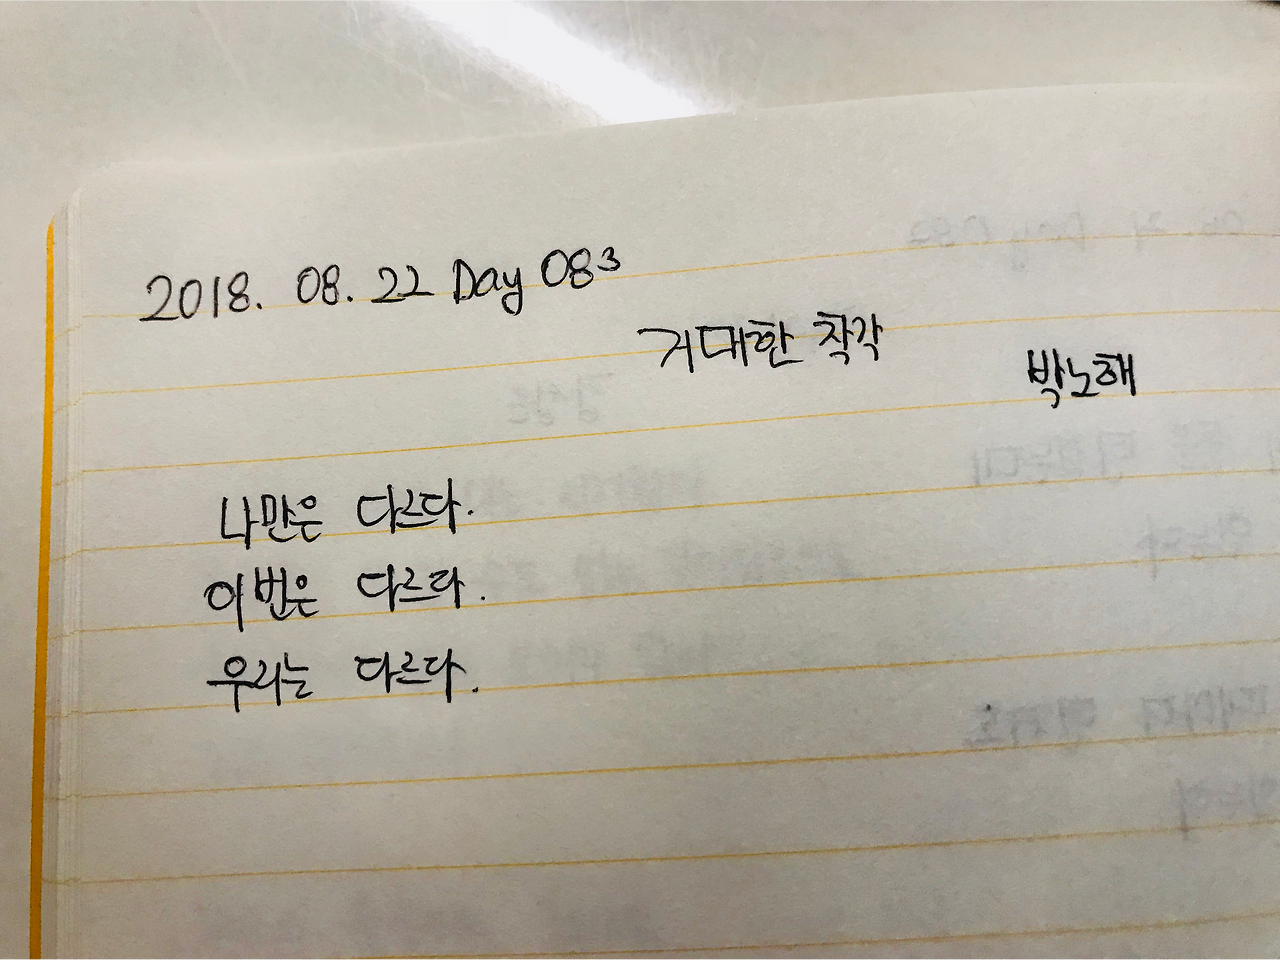 2018. 08. 22 Day 083
거대한 착각
박노해
나만은 다르다.
이번은 다르다.
우리는 다르다.